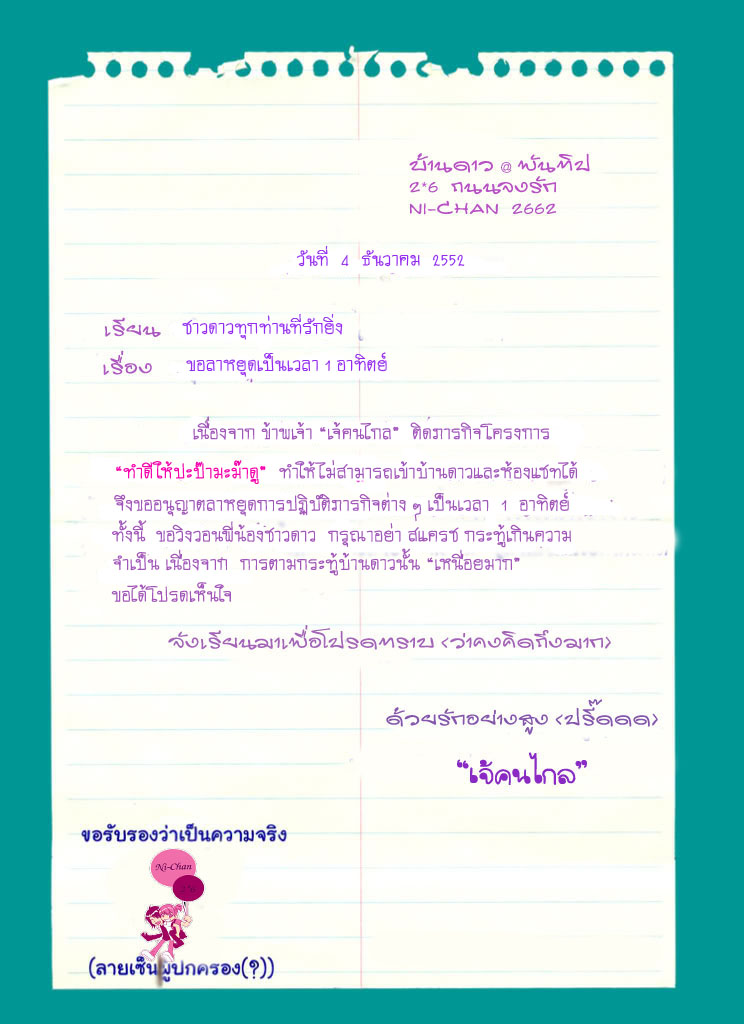 บ้านดาว @ พันทิป
2*6 ถนนจงรัก
NI-CHAN 2662
วันที่ 4 ธันวาคม 2552
เรียน ชาวดาวทุกท่านที่รักยิ่ง
เรื่อง ขอลาหยุดเป็นเวลา 1 อาทิตย์
เนื่องจาก ข้าพเจ้า “เจ้คนไกล” ติดภารกิจโครงการ
“ทำดีให้ปะป๊ามะม๊าดู” ทำให้ไม่สามารถเข้าบ้านดาวและห้องแชทได้
จึงขออนุญาตลาหยุดการปฏิบัติภารกิจต่าง ๆ เป็นเวลา 1 อาทิตย์
ทั้งนี้ ขอวิงวอนพี่น้องชาวดาว กรุณาอย่า สแครช กระทู้เกินความ
จำเป็น เนื่องจาก การตามกระทู้บ้านดาวนั้น “เหนื่อยมาก”
ขอได้โปรดเห็นใจ
จึงเรียนมาเพื่อโปรดทราบ <ว่าคงคิดถึงมาก>
ด้วยรักอย่างสูง <ปรี๊ดดด>
“เจ้คนไกล”
ขอรับรองว่าเป็นความจริง
Ni-Chan
(ลายเซ็นผู้ปกครอง(?))